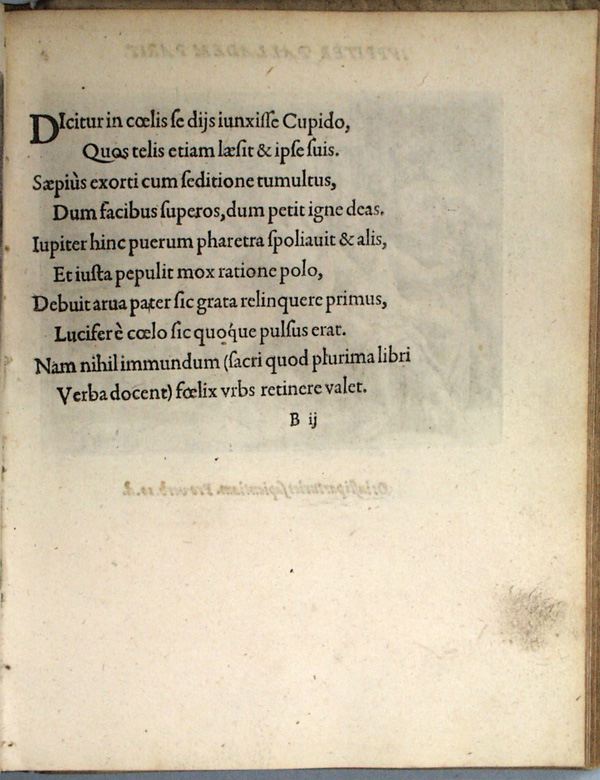 DIcitur in cœlis ſe dijs iunxiſſe Cupido,
Quos telis etiam læſit & ipſe ſuis.
Sæpiùs exorti cum ſeditione tumultus,
Dum facibus ſuperos, dum petit igne deas.
Iupiter hinc puerum pharetra ſpoliauit & alis,
Et iuſta pepulit mox ratione polo,
Debuit arua pater ſic grata relinquere primus,
Lucifer è cœlo ſic quoq́ue pulſus erat.
Nam nihil immundum (ſacri quod plurima libri
Verba docent) fœlix vrbs retinere valet.
B ij